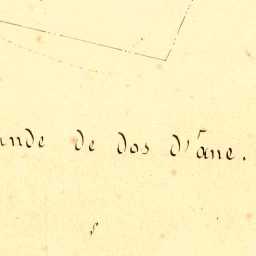 ande de dos d'âne.